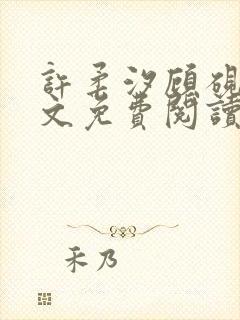 許柔汐顧硯
文免費閱讀
禾乃